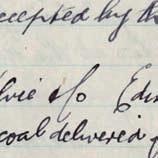 ccepted by th
lvie c/o Edw
coal delivered